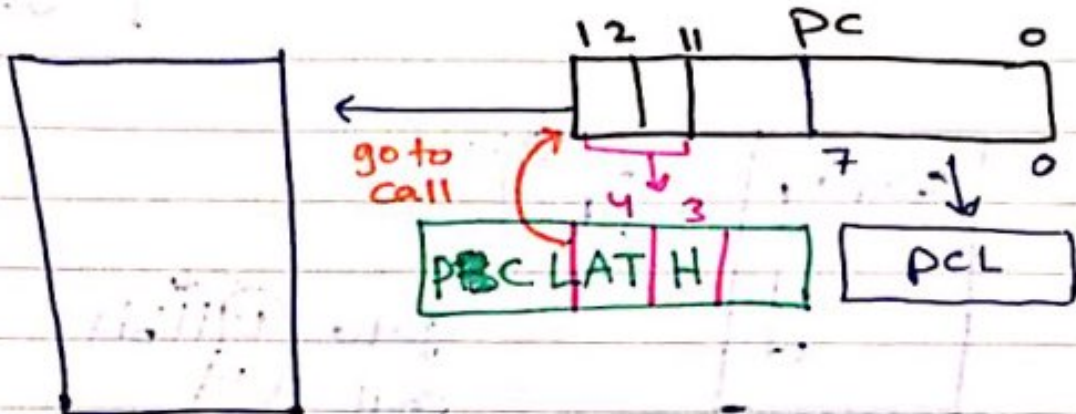 12 11 PC 0
go to 7 0
call 4 3
PCLATH PCL